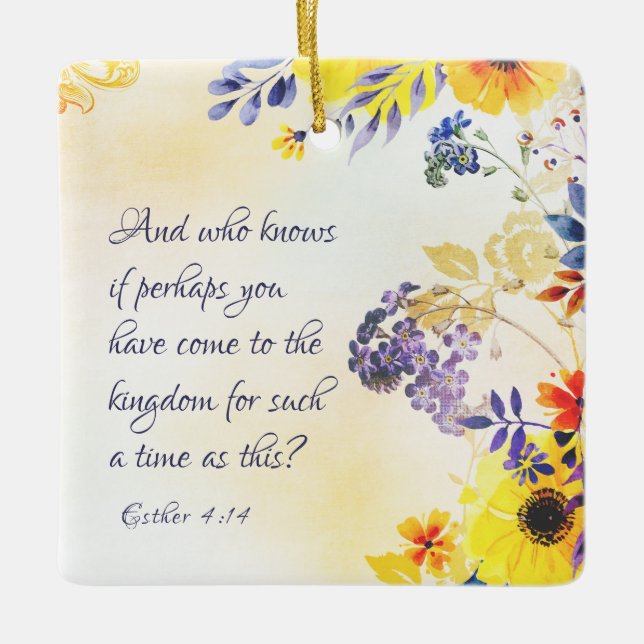 And who knows
if perhaps you
have come to the
kingdom for such
a time as this?
Esther 4:14